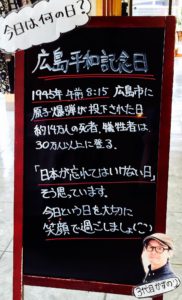 今日は何の日?
広島平和記念日
1945年 午前8:15 広島市に
原子爆弾が投下された日
約14万人の死者、犠牲者は
30万人以上に登る。
「日本が忘れてはいけない日」
そう思っています。
今日という日を大切に
笑顔で過ごしましょ(^^)
3代目かずの